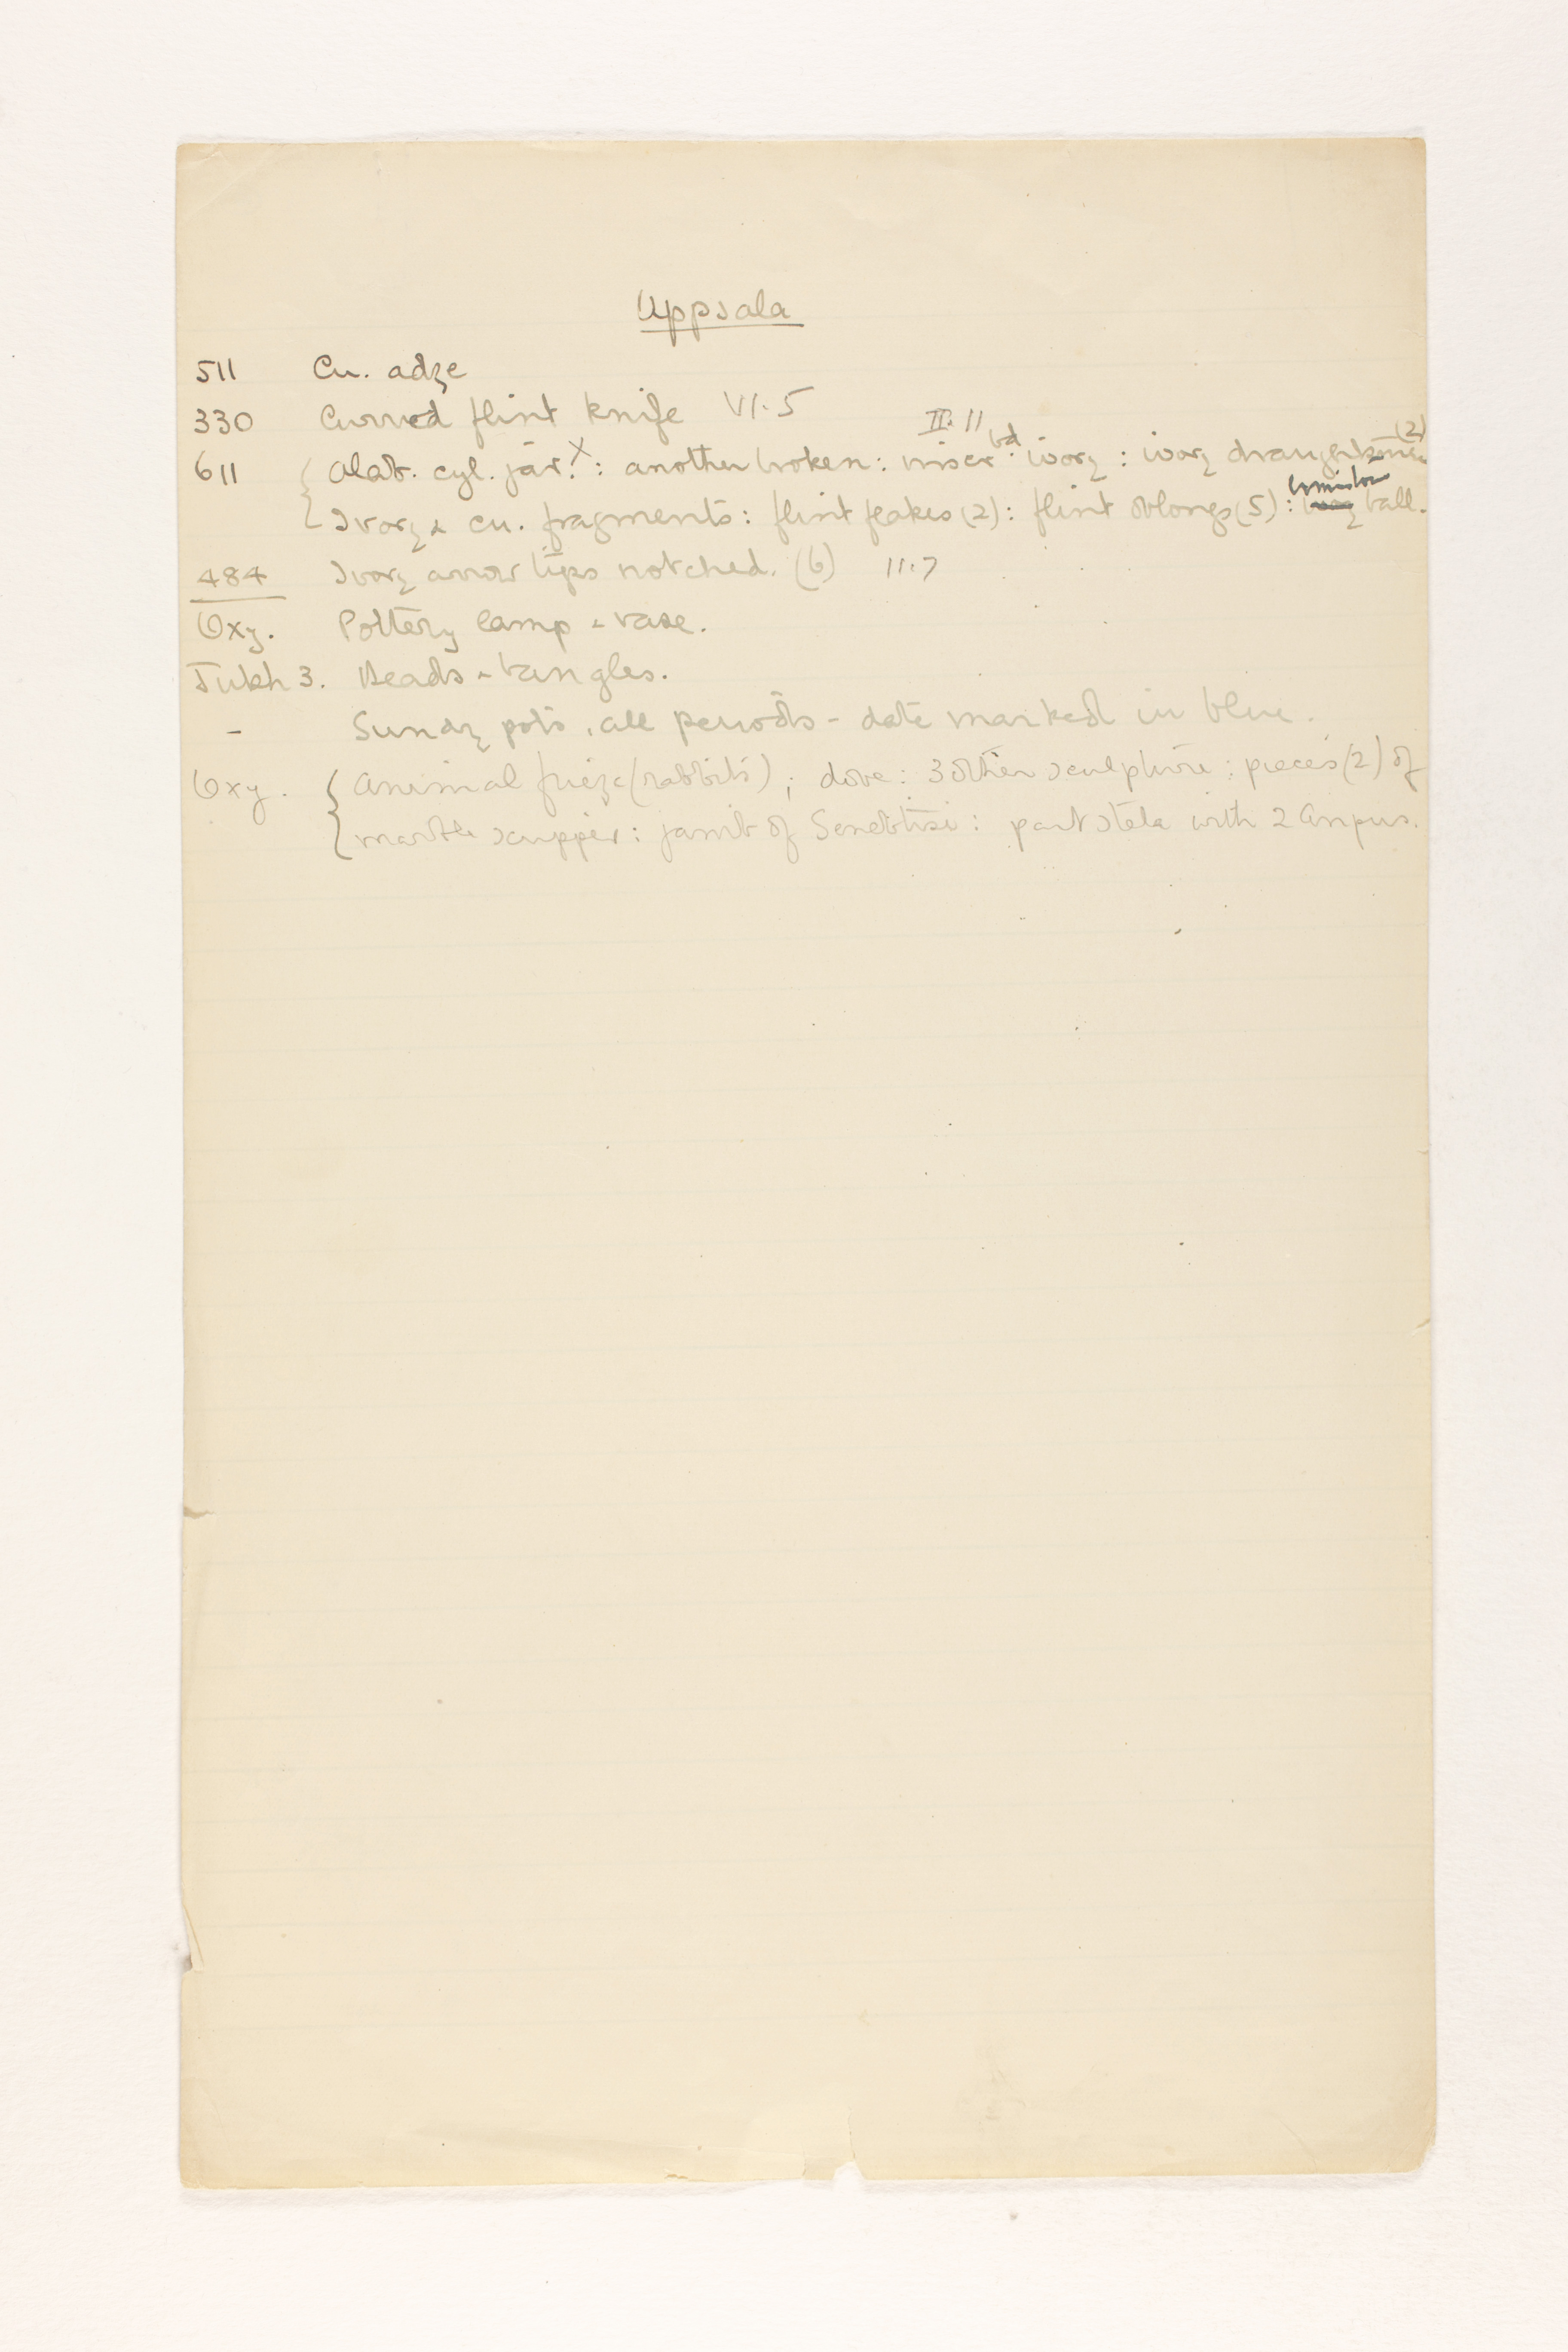 Uppsala
511 Cu. adze
330 Curved flint knife VI. 5
II. 11
611 { Alab. cyl. jar. X : another broken : inscr bd. ivory : ivory draughtsmen (2)
Ivory & cu. fragments : flint flakes (2) : flint oblongs (5) : limestone ball.
484 Ivory arrow tips notched. (6) 11.7
Oxy. Pottery lamp & vase.
Tukh 3. Beads & bangles.
- Sundry pots, all periods - date marked in blue.
Oxy. { Animal frieze (rabbits) ; dove : 3 other sculpture : pieces (2) of
marble scupper : jamb of Senebtisi : part stela with 2 Anpus.